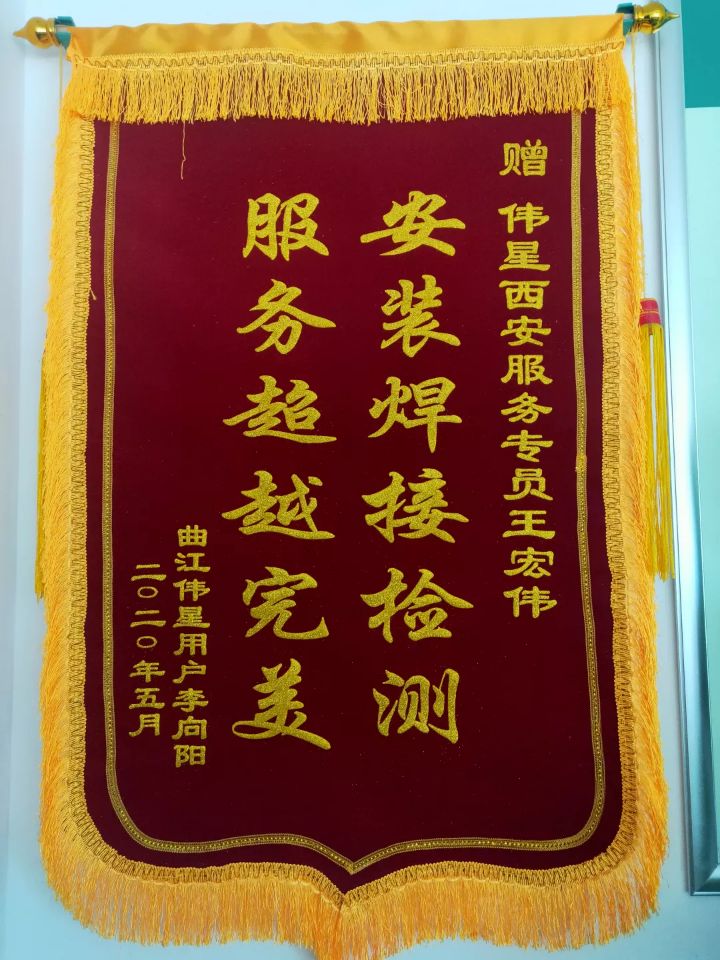 赠 伟星西安服务专员王宏伟
安装焊接检测
服务超越完美
曲江伟星用户李向阳
二〇二〇年五月